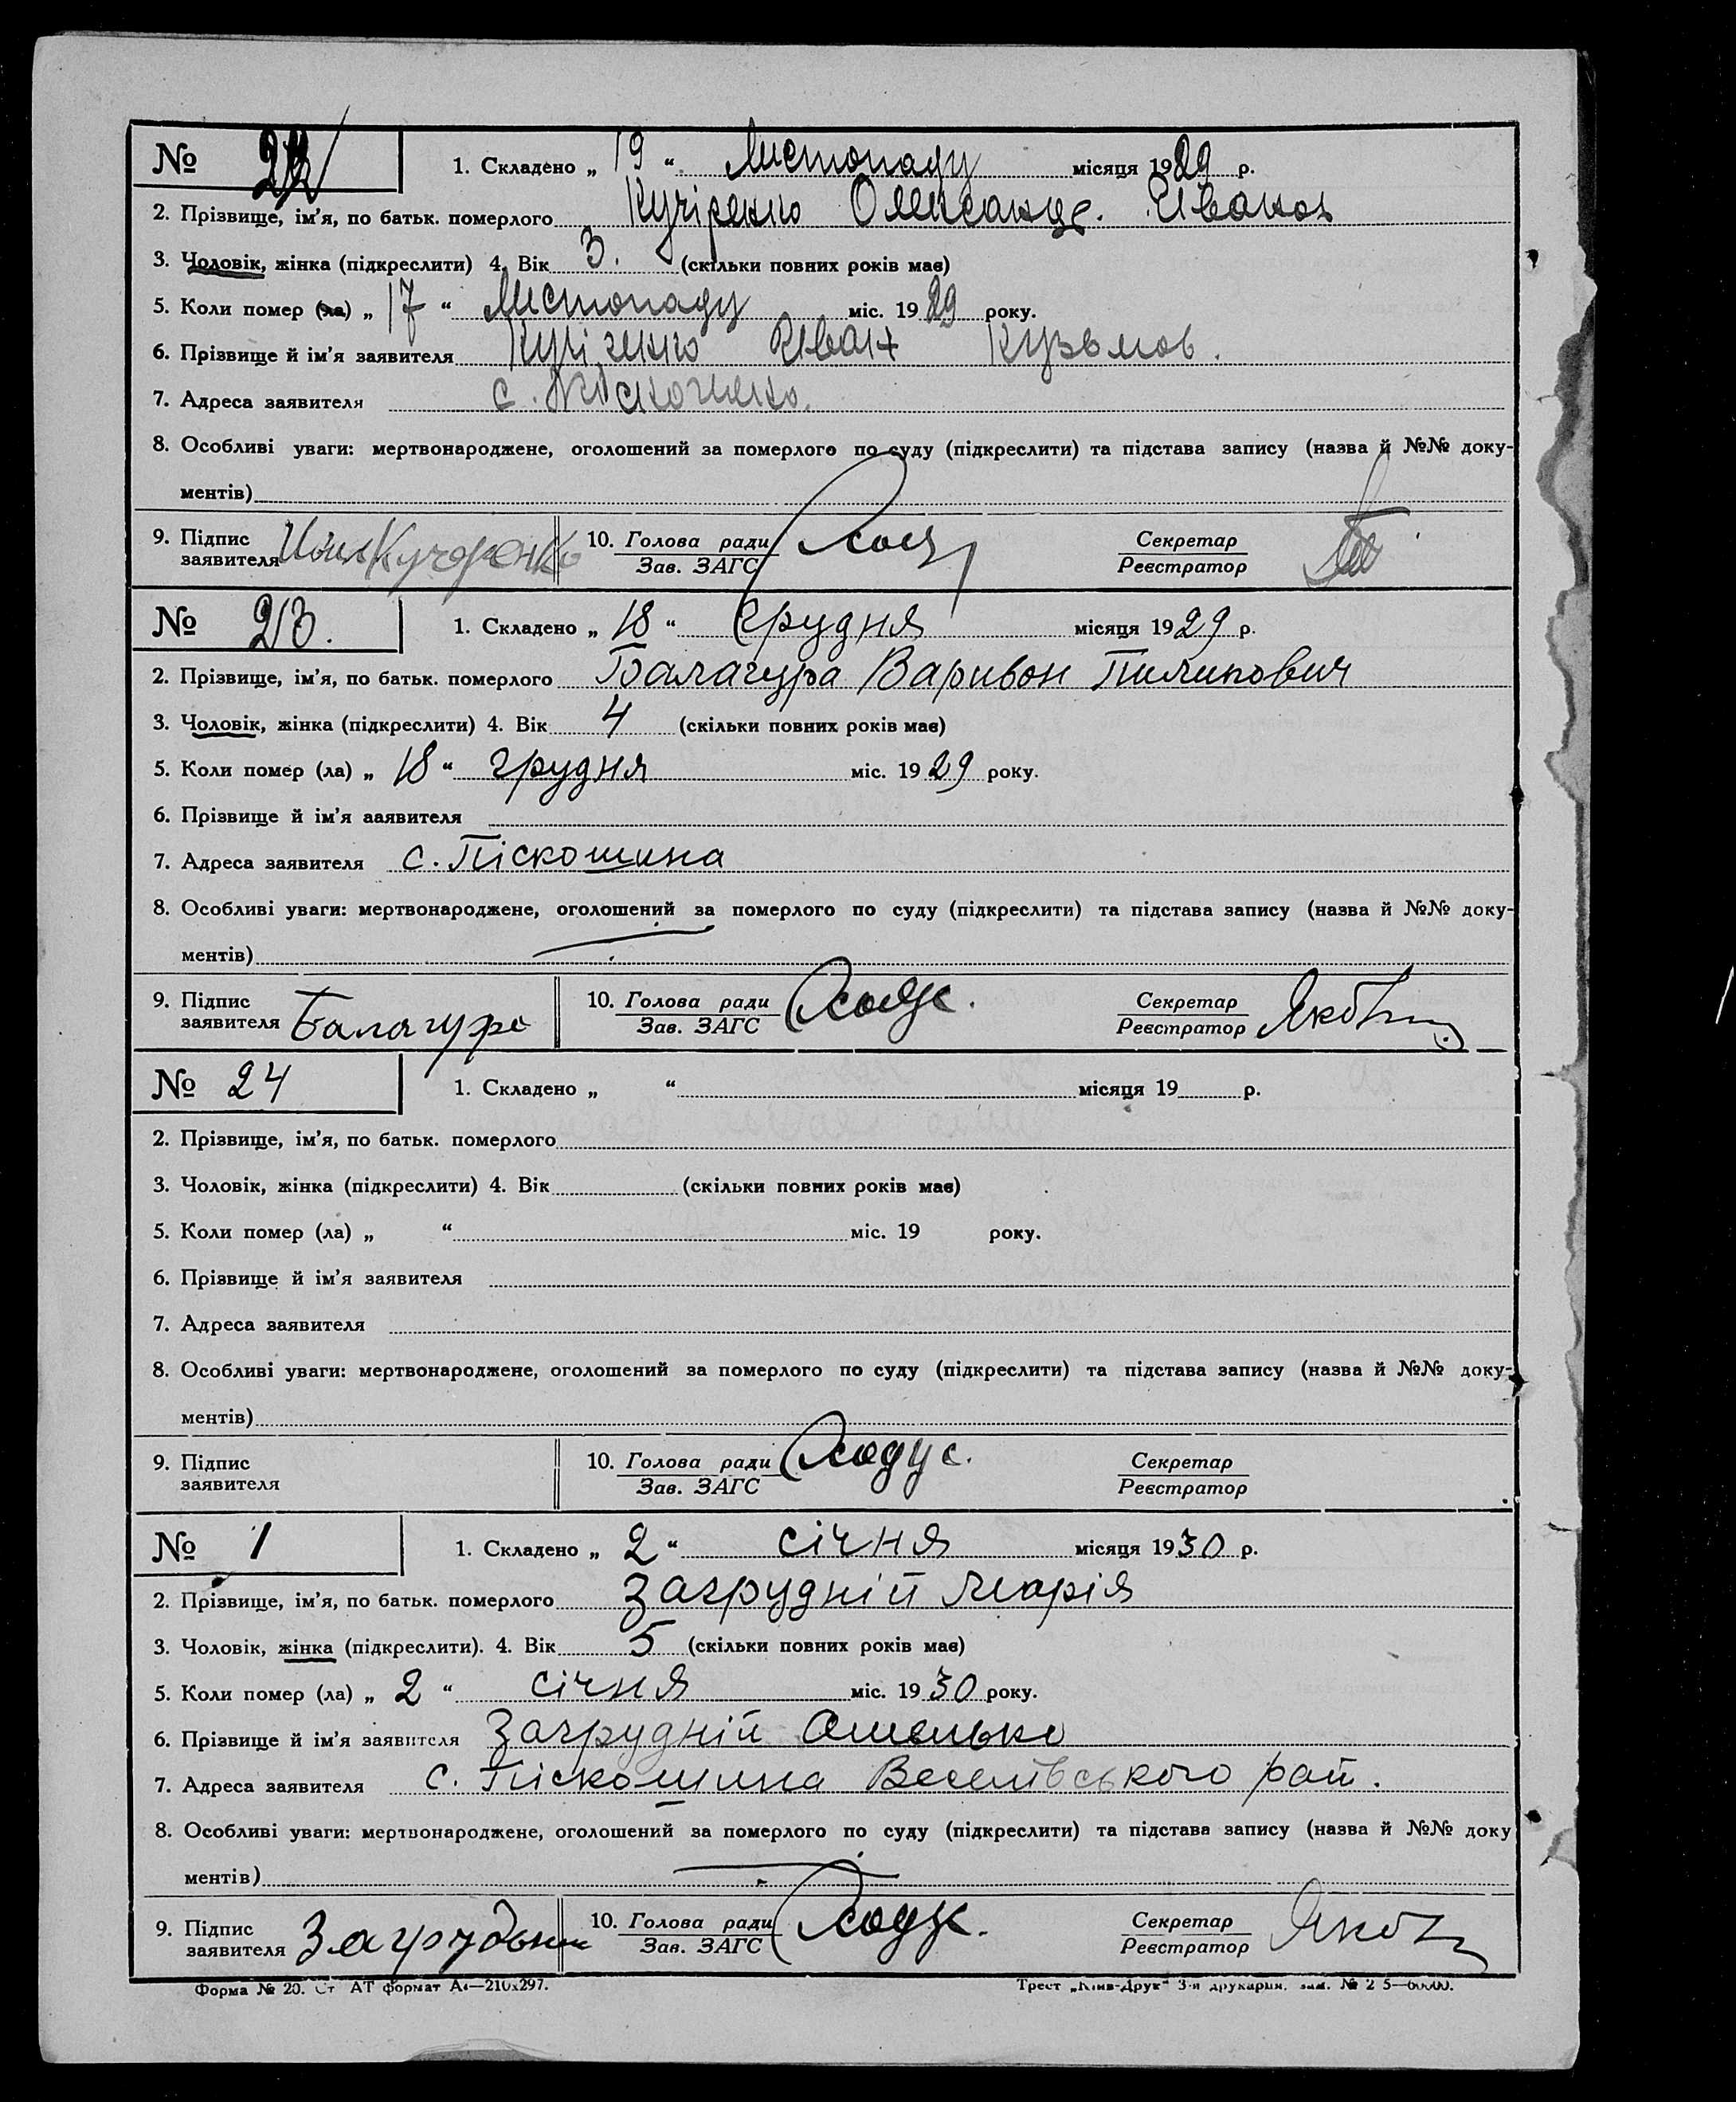 № 22 1. Складено „ 19 “ Листопаду місяця 1929 р.
2. Прізвище, ім'я, по батьк. померлого Кучіренко Олександр. Іванов
3. Чоловік, жінка (підкреслити) 4. Вік 3. (скільки повних років має)
5. Коли помер (ла) „ 17 “ Листопаду міс. 1929 року.
6. Прізвище й ім'я заявителя Кучіренко Іван Кузьмов.
7. Адреса заявителя с.
8. Особливі уваги: мертвонароджене, оголошений за померлого по суду (підкреслити) та підстава запису (назва й №№ доку-
ментів)
9. Підпис 10. Голова ради Секретар
заявителя Кучеренко Зав. ЗАГС Реєстратор
№ 23. 1. Складено „ 18 “ грудня місяця 1929 р.
2. Прізвище, ім'я, по батьк. померлого Балагура Варивон Пилипович
3. Чоловік, жінка (підкреслити) 4. Вік 4 (скільки повних років має)
5. Коли помер (ла) „ 18 “ грудня міс. 1929 року.
6. Прізвище й ім'я ааявителя
7. Адреса заявителя с. Піскошина
8. Особливі уваги: мертвонароджене, оголошений за померлого по суду (підкреслити) та підстава запису (назва й №№ доку-
ментів)
9. Підпис 10. Голова ради Секретар
заявителя Балагура Зав. ЗАГС Реєстратор
№ 24 1. Складено „ “ місяця 19 р.
2. Прізвище, ім'я, по батьк. померлого
3. Чоловік, жінка (підкреслити) 4. Вік (скільки повних років має)
5. Коли помер (ла) „ “ міс. 19 року.
6. Прізвище й ім'я заявителя
7. Адреса заявителя
8. Особливі уваги: мертвонароджене, оголошений за померлого по суду (підкреслити) та підстава запису (назва й №№ доку-
ментів)
9. Підпис 10. Голова ради Ходус. Секретар
заявителя Зав. ЗАГС Реєстратор
№ 1 1. Складено „ 2 “ січня місяця 1930 р.
2. Прізвище, ім'я, по батьк. померлого Загрудній Марія
3. Чоловік, жінка (підкреслити). 4. Вік 5 (скільки повних років має)
5. Коли помер (ла) „ 2 “ січня міс. 1930 року.
6. Прізвище й ім'я заявителя Загрудній Омелько
7. Адреса заявителя с. Піскошина Веселівського рай.
8. Особливі уваги: мертвонароджене, оголошений за померлого по суду (підкреслити) та підстава запису (назва й №№ доку
ментів)
9. Підпис 10. Голова ради Секретар
заявителя Зав. ЗАГС Реєстратор
Форма № 20. Ст АТ формат А4—210x297. Трест „Київ-Друк“ 3-я друкарня,